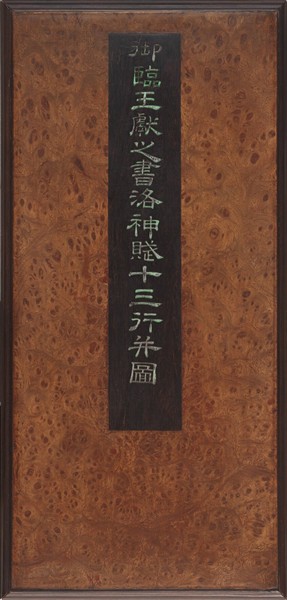 御臨王獻之書洛神賦十三行并圖